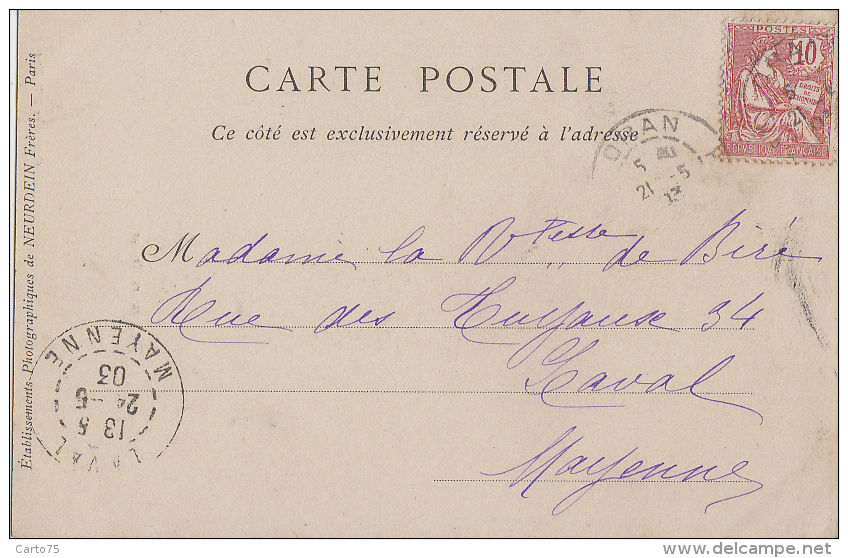 CARTE POSTALE
Ce côté est exclusivement réservé à l'adresse
POSTES
10
DROITS
DE
L'HOMME
REPUBLIQUE FRANÇAISE
ORAN
5
21 -5
Madame la Vtesse de Biré
Rue des 34
Laval
Mayenne
LAVAL
13 5
2 -5
03
MAYENNE
Établissements Photographiques de NEURDEIN Frères. — Paris
Carto75
www.delcampe.net